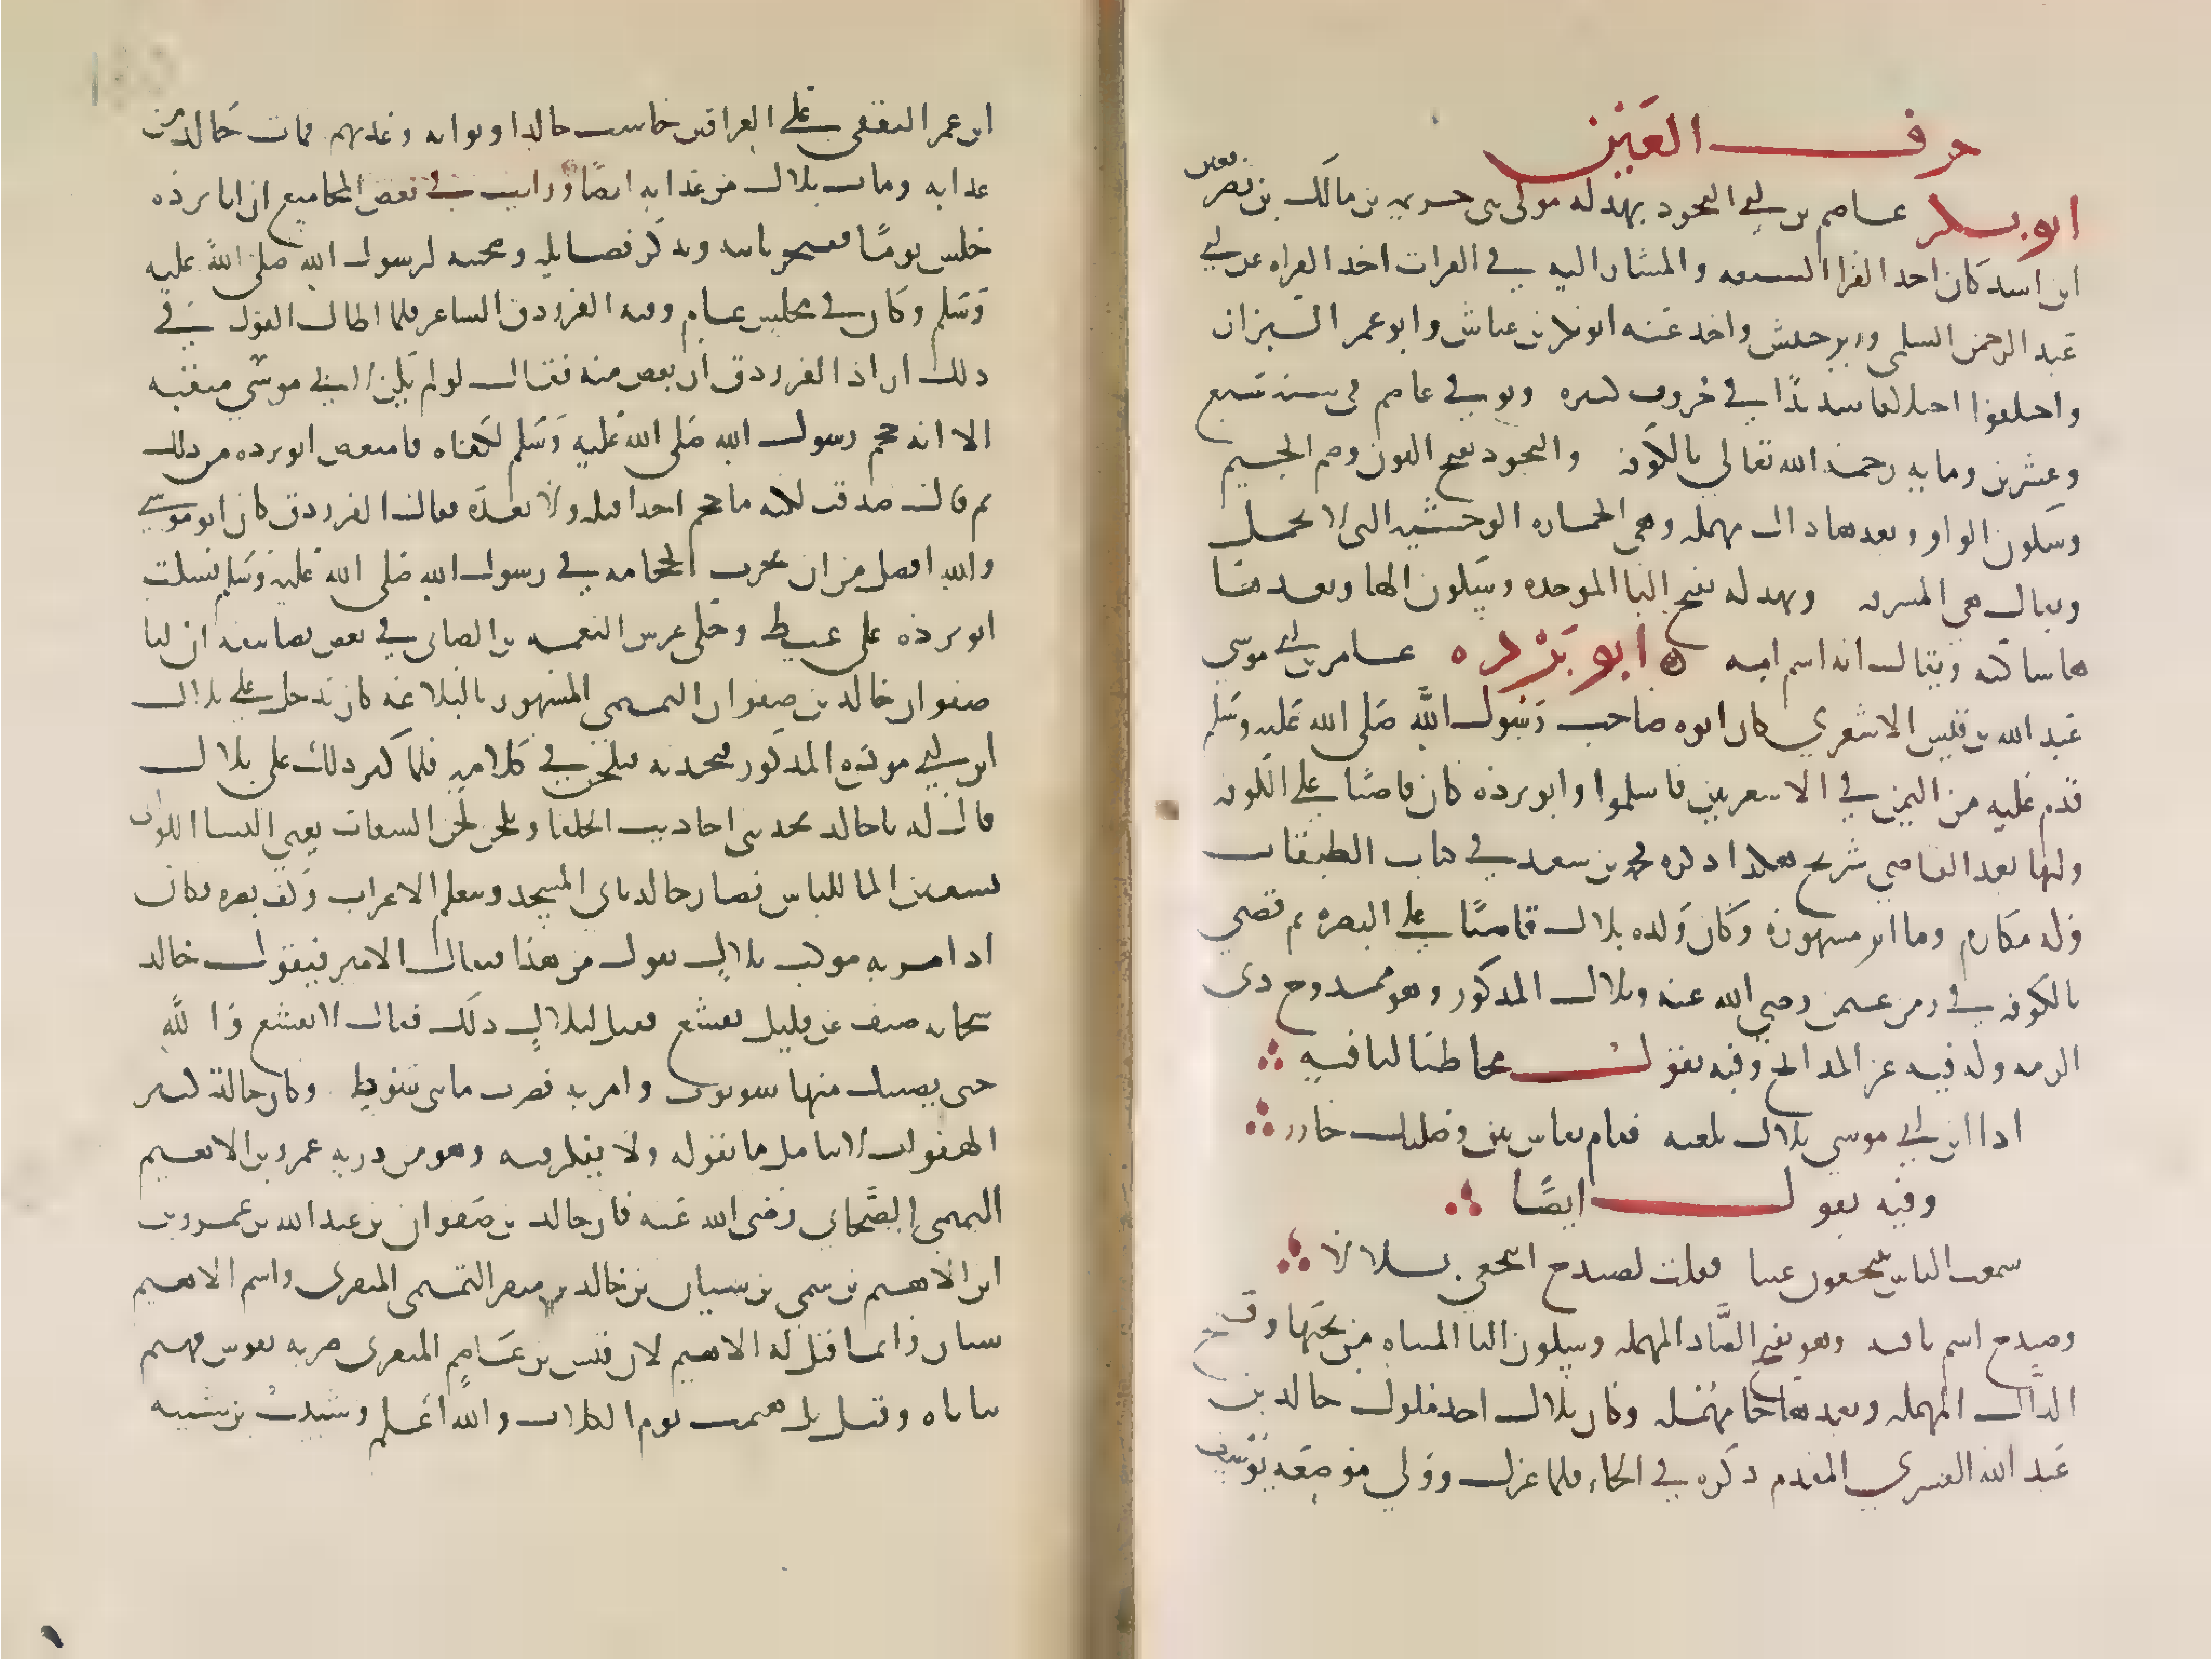 حرف العين
ابو بكر عاصم بن ابي النجود بهدله مولى بني جذيمه بن مالك بن نصر بن قعين
ابن اسد كان احد القرا السبعه والمشار اليه في القرات اخذ القراه عن ابي
عبد الرحمن السلمي وزر بن حبيش واخذ عنه ابو بكر بن عياش وابو عمر البزاز
واختلفوا اختلافا شديدًا في حروف كثيره وتوفي عاصم في سنه سبع
وعشرين ومايه رحمه الله تعالى بالكوفه والنجود بفتح النون وضم الجيم
وسكون الواو وبعدها دال مهمله وهي الحماره الوحشيه التي لا تحمل
ويقال هي المشرفه وبهدله بفتح البا الموحده وسكون الها وبعدها
ها ساكنه ويقال انه اسم امه ابو بَرْده عامر بن ابي موسى
عبد الله بن قيس الاشعري كان ابوه صاحب رسول الله صلى الله عليه وسلم
قدم عليه من اليمن في الاشعريين فاسلموا وابو برده كان قاضيا على الكوفه
وليها بعد القاضي شريح هكذا ذكره محمد بن سعد في كتاب الطبقات
وله مكارم وماثر مشهوره وكان ولده بلال قاضيًا على البصره ثم قضى
بالكوفه في زمن عثمن رضي الله عنه وبلال المذكور وهو ممدوح ذي
الرمه وله فيه غر المدائح وفيه يقول مخاطبا لناقته
اذا ابن ابي موسى بلال بلغته فقام بفاس بين وصليك جازر
وفيه يقول ايضًا
سمعت الناس ينتجعون غيثا فقلت لصيدح انتجعي بلالا
وصيدح اسم ناقته وهو بفتح الصَّاد المهمله وسكون اليا المثناه من تحتها وفتح
الدال المهمله وبعدها حا مهمله وكان بلال احد فلول خالد بن
عبد الله القسري المقدم ذكره في الخاء فلما عزل وولي موضعه يوسف
ابن عمر الثقفي على العراقين حاسب خالدا ونوابه وعذبهم فمات خالد من
عذابه ومات بلال من عذابه ايضًا ورايت في بعض المجاميع ان ابا برده
جلس يومًا يفتخر بابيه ويذكر فضايله وصحبته لرسول الله صلى الله عليه
وسلم وكان في مجلس عام وفيه الفرزدق الشاعر فلما اطال القول في
ذلك اراد الفرزدق ان يغض منه فقال لو لم يكن لابي موسى منقبه
الا انه حجم رسول الله صلى الله عليه وسلم لكفاه فامتعض ابو برده من ذلك
ثم قال صدقت لكنه ما حجم احدا قبله ولا بعده فقال الفرزدق كان ابو موسى
والله افضل من ان يجرب الحجامه في رسول الله صلى الله عليه وسلم فسكت
ابو برده على غيظ وحكى غرس النعمه بن الصابي في بعض تصانيفه ان ابا
صفوان خالد بن صفوان التميمي المشهور بالبلاغه كان يدخل على بلال
ابن ابي بوده المذكور يحدثه فيلحن في كلامه فلما كثر ذلك على بلال
قال له يا خالد تحدثني احاديث الخلفا وتلحن لحن السقات يعني النسا اللواتي
تسقين الما للناس فصار خالد ياتي المسجد ويتعلم الاعراب وكف بصره فكان
اذا مر به موكب بلال يقول من هذا فيقال الامير فيقول خالد
سحابه صيف عن قليل تقشع فقيل لبلال ذلك فقال لا تقشع والله
حتى يصيبك منها شؤبوب وامر به فضرب مايتي سوط وكان خالد كثير
الهفوات لا يتامل ما يقوله ولا يفكر فيه وهو من ذريه عمرو بن الاهتم
التميمي الصَّحابي رضي الله عنه فان خالد بن صفوان بن عبد الله بن عمرو بن
ابن الاهتم بن سمي بن سنان بن خالد بن منقر التميمي المنقري واسم الاهتم
سنان وانما قيل له الاهتم لان قيس بن عاصم المنقري ضربه بقوس فهتم
ثناياه وقيل بل هتمت يوم الكلاب والله اعلم وشبيب بن شيبه